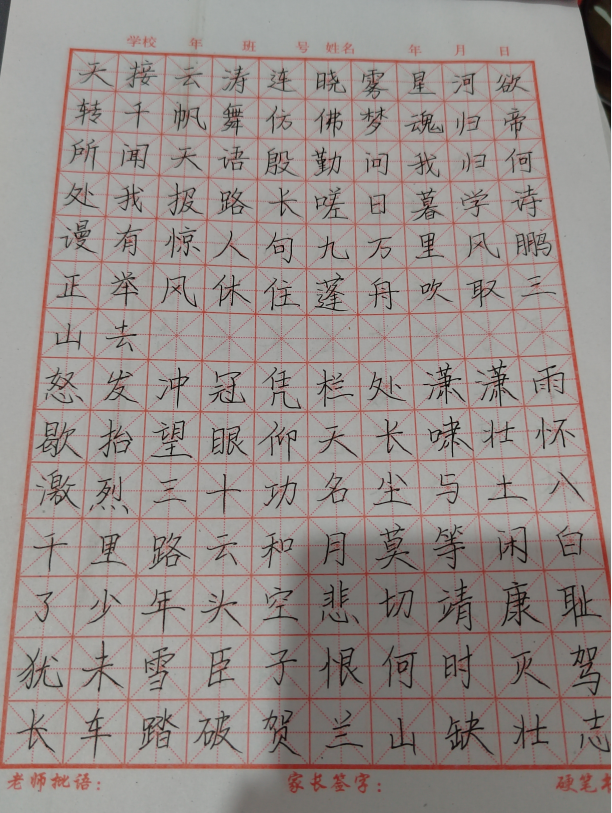 学校 年 班 号 姓名 年 月 日
天接云涛连晓雾星河欲
转千帆舞仿佛梦魂归帝
所闻天语殷勤问我归何
处我报路长嗟日暮学诗
谩有惊人句九万里风鹏
正举风休住蓬舟吹取三
山去
怒发冲冠凭栏处潇潇雨
歇抬望眼仰天长啸壮怀
激烈三十功名尘与土八
千里路云和月莫等闲白
了少年头空悲切靖康耻
犹未雪臣子恨何时灭驾
长车踏破贺兰山缺壮志
老师批语： 家长签字： 硬笔书